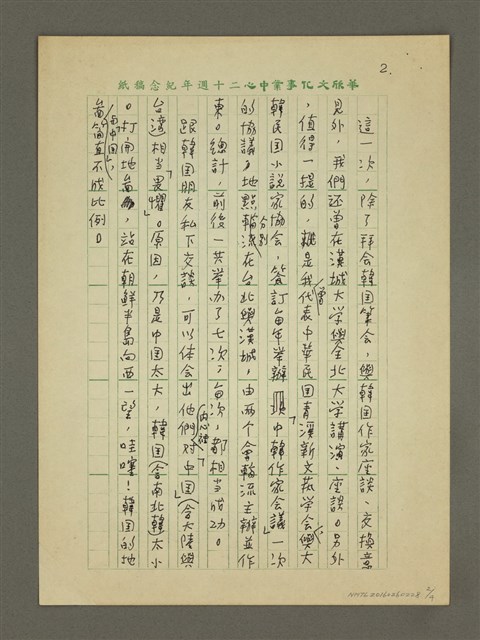 2.
華欣文化事業中心二十週年紀念稿紙
這一次，除了拜会韓国筆会，與韓国作家座談、交換意
見外，我們还曾在漢城大学與全北大学講演、座談。另外
，值得一提的，就是我曾代表中華民国青溪新文藝学会與大
韓民国小説家協会，簽訂每年举辦「中韓作家会議」一次
的協議，地點分别輪流在台北與漢城，由两个會輪流主辦並作
東。總計，前後一共举办了七次，每次，都相当成功。
跟韓国朋友私下交談，可以体会出他們内心裡，对「中国（含大陸與
台湾）相当畏懼」。原因，乃是中国太大，韓国（含南北韓）太小
。打開地啚，站在朝鮮半島向西一望，哇噻！韓国的地
啚與中国比，简直不成比例。
NMTL20160260028 2/9